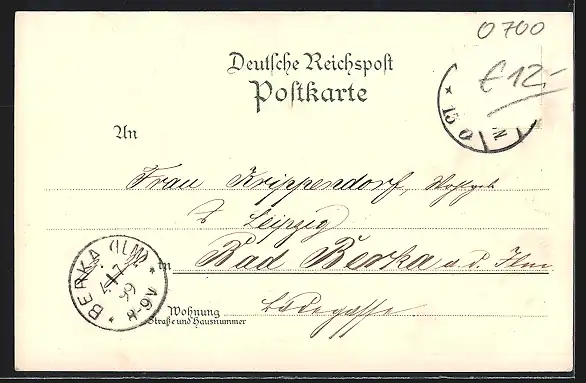 0700
€ 12.-
Deutsche Reichspost
Postkarte
* 15 O
N
An
Frau Krippendorf, Wohlgeb
Leipzig
in Bad Berka a. d. Ilm
BERKA (ILM)
99
8-9V
Wohnung
Straße und Hausnummer